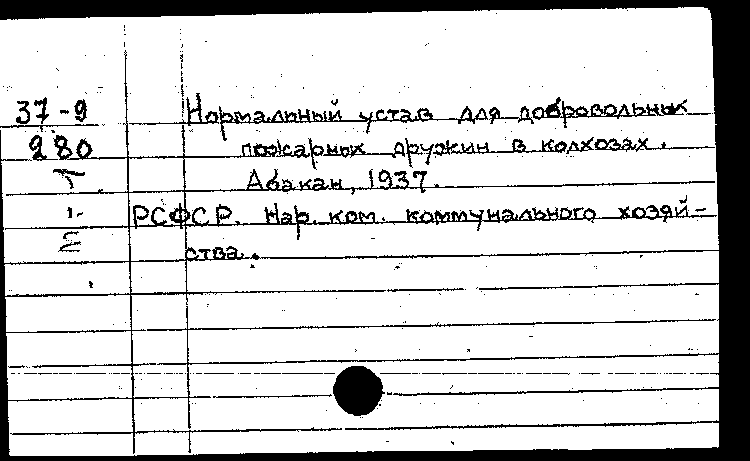 37-9 Нормальный устав для добровольных
280 пожарных дружин в колхозах.
Абакан, 1937.
РСФСР. Нар. ком. коммунального хозяй-
ства.